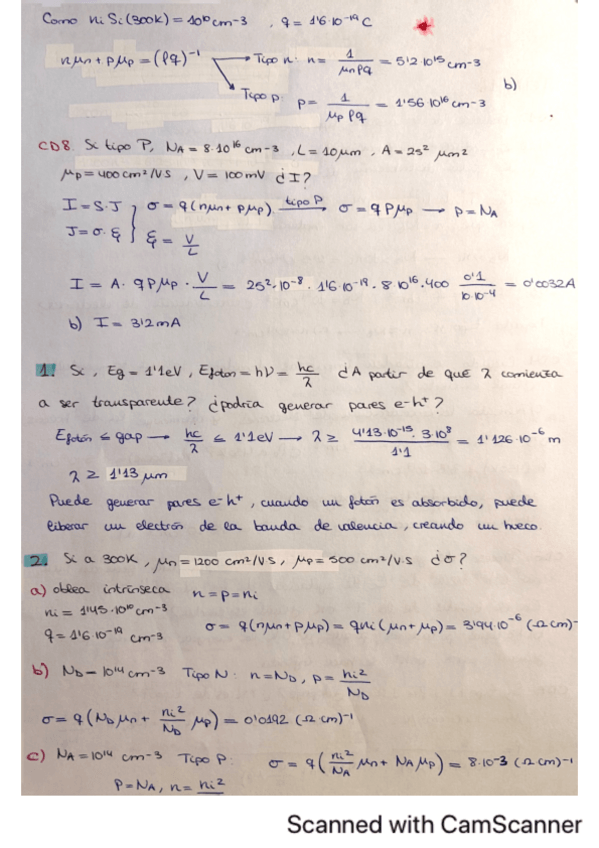 Como ni Si (300K) = 10¹⁰ cm-3 , q = 1'6·10⁻¹⁹ C
nμn + pμp = (ρq)⁻¹ → Tipo n: n = 1/(μn ρq) = 5'2·10¹⁵ cm-3
→ Tipo p: p = 1/(μp ρq) = 1'56 10¹⁶ cm-3
b)
CD8. Si tipo P, NA = 8·10¹⁶ cm-3 , L = 10μm , A = 25² μm²
μp = 400 cm²/VS , V = 100 mV ¿I?
I = S·J } σ = q(nμn + pμp) tipo P → σ = qPμp → p = NA
J = σ·ξ } ξ = V/L
I = A· qPμp · V/L = 25²·10⁻⁸ · 1'6·10⁻¹⁹ · 8·10¹⁶·400 0'1/(10·10⁻⁴) = 0'0032A
b) I = 3'2mA
1. Si , Eg = 1'1eV , Efoton = hν = hc/λ ¿A partir de que λ comienza
a ser transparente? ¿podría generar pares e-h⁺?
Efotón ≤ gap → hc/λ ≤ 1'1eV → λ ≥ (4'13·10⁻¹⁵ · 3·10⁸)/1'1 = 1'126·10⁻⁶ m
λ ≥ 1'13 μm
Puede generar pares e-h⁺, cuando un fotón es absorbido, puede
liberar un electrón de la banda de valencia, creando un hueco.
2. Si a 300K, μn = 1200 cm²/VS , μp = 500 cm²/V·S ¿σ?
a) oblea intrínseca n = p = ni
ni = 1'45·10¹⁰ cm-3
q = 1'6·10⁻¹⁹ cm-3 σ = q(nμn + pμp) = qni(μn + μp) = 3'94·10⁻⁶ (Ω cm)-
b) ND - 10¹⁴ cm-3 Tipo N: n = ND , p = ni²/ND
σ = q(NDμn + ni²/ND μp) = 0'0192 (Ω cm)-1
c) NA = 10¹⁴ cm-3 Tipo P: σ = q(ni²/NA μn + NAμp) = 8·10-3 (Ω cm)-1
P = NA, n = ni²
Scanned with CamScanner